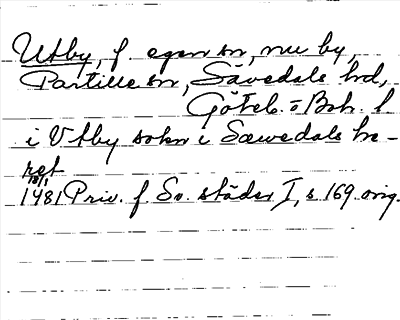 Utby, f. egen sn, nu by,
Partille sn, Sävedals hd,
Göteb. o Boh. l
i Vtby sokn i Sæwedals he-
ret
18/1
1481 Priv. f Sv. städer I, s 169. orig.